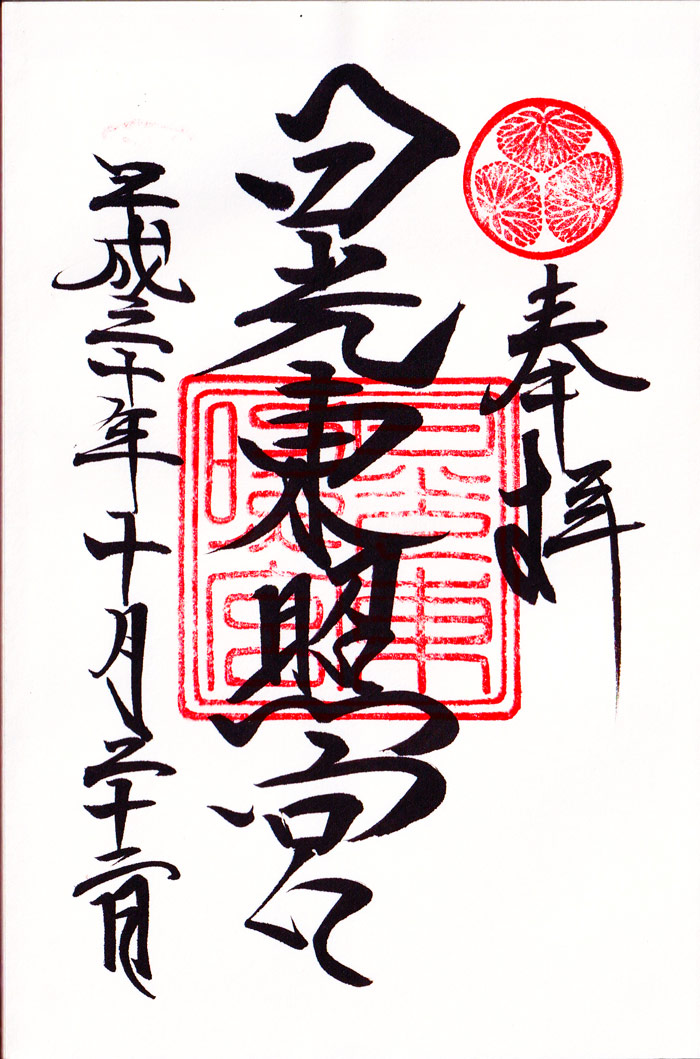 奉拝
日光東照宮
日光東照宮
平成三十年十月二十二日